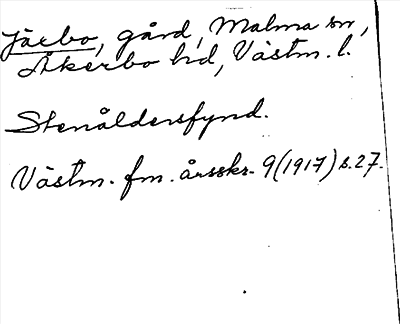 Järbo, gård, Malma sn,
Åkerbo hd, Västm. l.
Stenåldersfynd.
Västm. fm. årsskr. 9(1917) s.27.